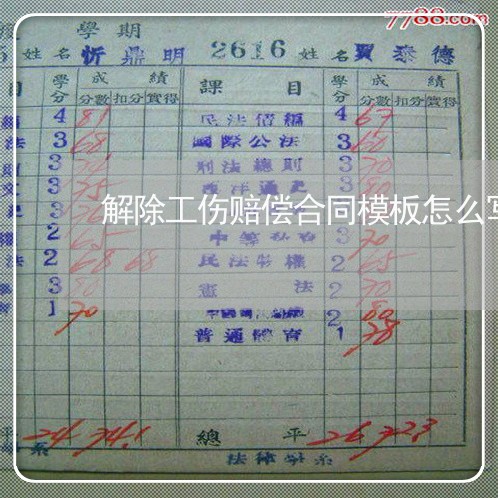 7788.com
學期
姓名 忻鼎明 2616 姓名 賈泰德
目 學分 成績 課目 學分 成績
分數 扣分 實得 分數 扣分 實得
4 81 民法債編 4 67
法 3 68 國際公法 3 60
3 刑法總則 3 70
3 75 西洋通史 3 80
3
解除工伤赔偿合同模板怎么写
2 65 3 70
法 2 68 68 民法物權 2 65
3 80 憲法 2 70
1 70 2 80
普通體育 1 78
平 24 74.1 總平 26 72.3
系 法律學系